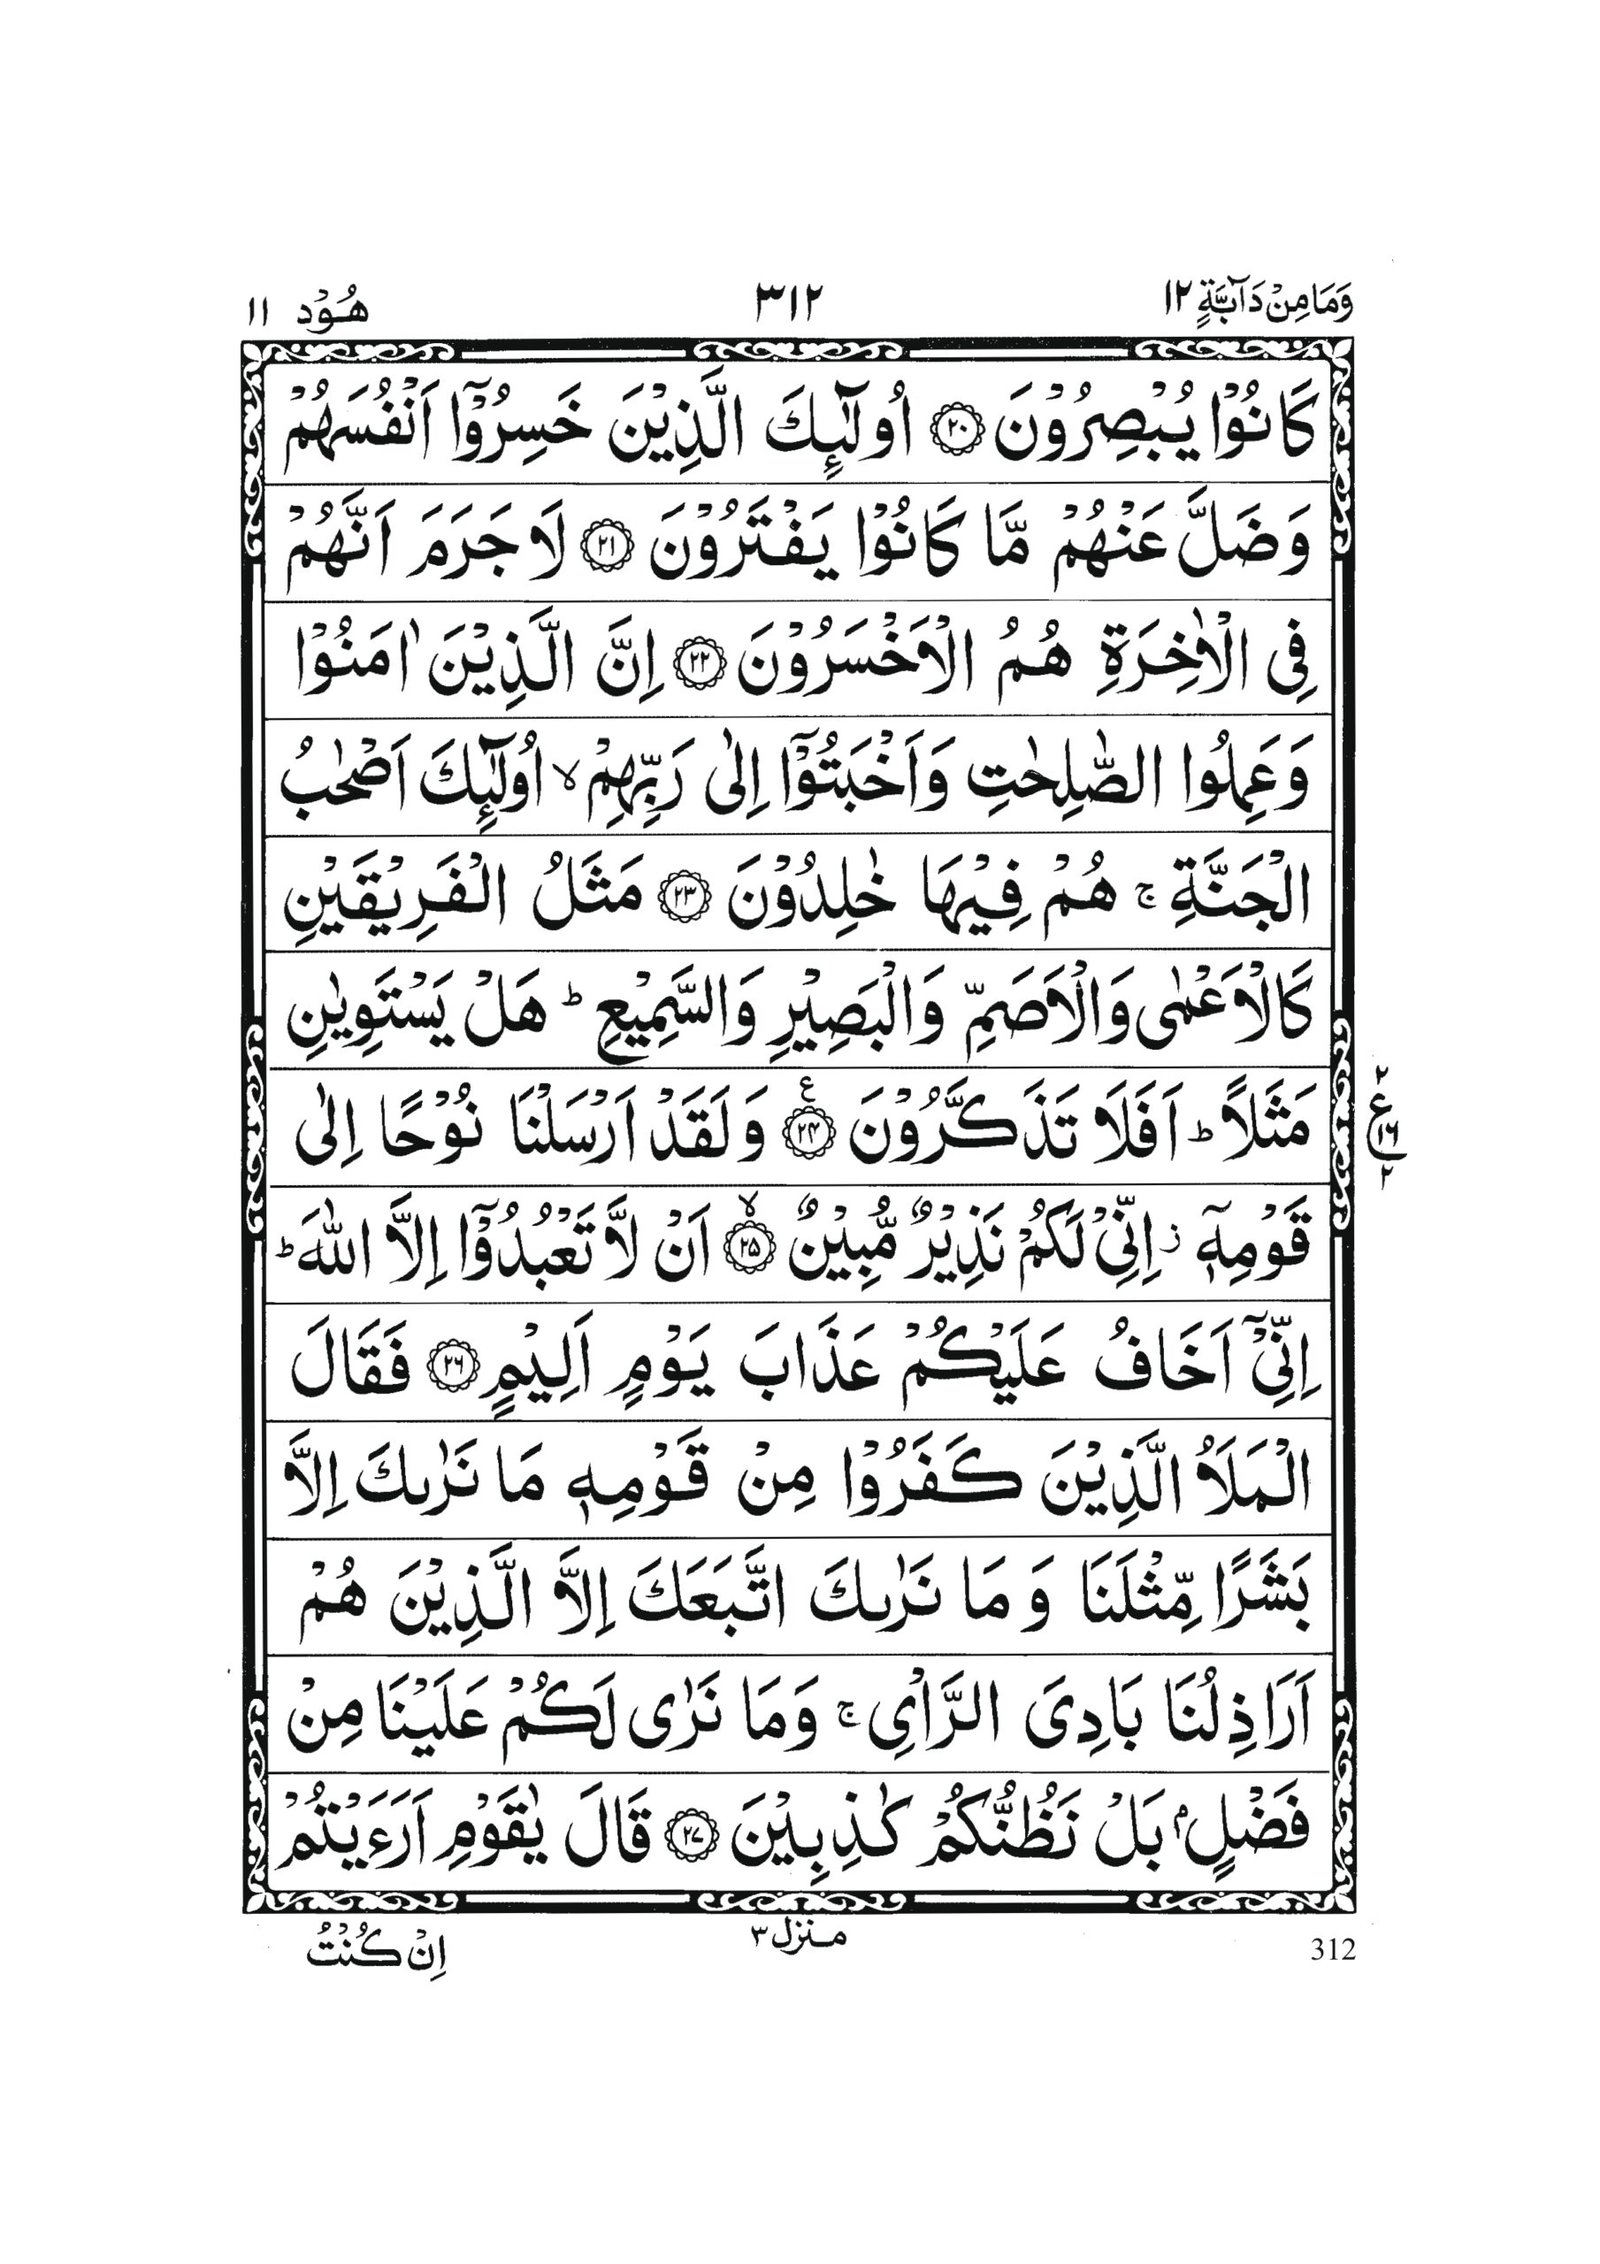 وَمَا مِنْ دَآبَّةٍ ١٢ ٣١٢ هُوْد ١١
كَانُوْا يُبْصِرُوْنَ ﴿٢٠﴾ اُولٰٓئِكَ الَّذِيْنَ خَسِرُوْٓا اَنْفُسَهُمْ
وَضَلَّ عَنْهُمْ مَّا كَانُوْا يَفْتَرُوْنَ ﴿٢١﴾ لَا جَرَمَ اَنَّهُمْ
فِى الْاٰخِرَةِ هُمُ الْاَخْسَرُوْنَ ﴿٢٢﴾ اِنَّ الَّذِيْنَ اٰمَنُوْا
وَعَمِلُوا الصّٰلِحٰتِ وَاَخْبَتُوْٓا اِلٰى رَبِّهِمْ ۙ اُولٰٓئِكَ اَصْحٰبُ
الْجَنَّةِ ۚ هُمْ فِيْهَا خٰلِدُوْنَ ﴿٢٣﴾ مَثَلُ الْفَرِيْقَيْنِ
كَالْاَعْمٰى وَالْاَصَمِّ وَالْبَصِيْرِ وَالسَّمِيْعِ ؕ هَلْ يَسْتَوِيٰنِ
مَثَلًا ؕ اَفَلَا تَذَكَّرُوْنَ ﴿٢٤﴾ ع وَلَقَدْ اَرْسَلْنَا نُوْحًا اِلٰى
٢ ع ١٦ ٢
قَوْمِهٖٓ ز اِنِّىْ لَكُمْ نَذِيْرٌ مُّبِيْنٌ ۙ ﴿٢٥﴾ اَنْ لَّا تَعْبُدُوْٓا اِلَّا اللّٰهَ ؕ
اِنِّىْٓ اَخَافُ عَلَيْكُمْ عَذَابَ يَوْمٍ اَلِيْمٍ ﴿٢٦﴾ فَقَالَ
الْمَلَاُ الَّذِيْنَ كَفَرُوْا مِنْ قَوْمِهٖ مَا نَرٰىكَ اِلَّا
بَشَرًا مِّثْلَنَا وَمَا نَرٰىكَ اتَّبَعَكَ اِلَّا الَّذِيْنَ هُمْ
اَرَاذِلُنَا بَادِىَ الرَّاْىِ ۚ وَمَا نَرٰى لَكُمْ عَلَيْنَا مِنْ
فَضْلٍۢ بَلْ نَظُنُّكُمْ كٰذِبِيْنَ ﴿٢٧﴾ قَالَ يٰقَوْمِ اَرَءَيْتُمْ
312 منزل ٣ اِنْ كُنْتُ